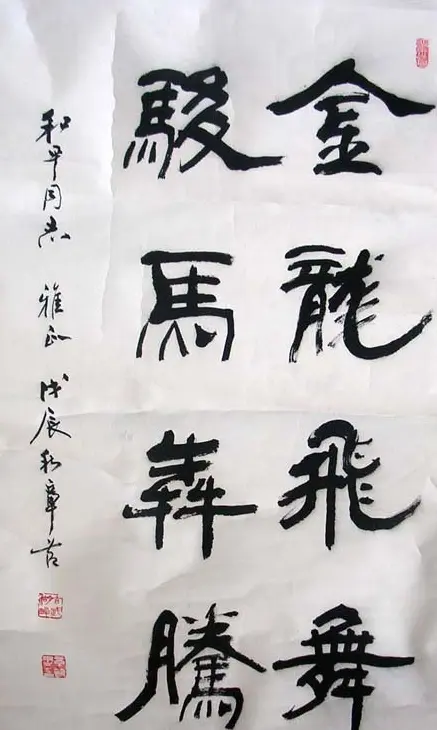 金龍飛舞
駿馬奔騰
和平同志 雅正 戊辰秋章